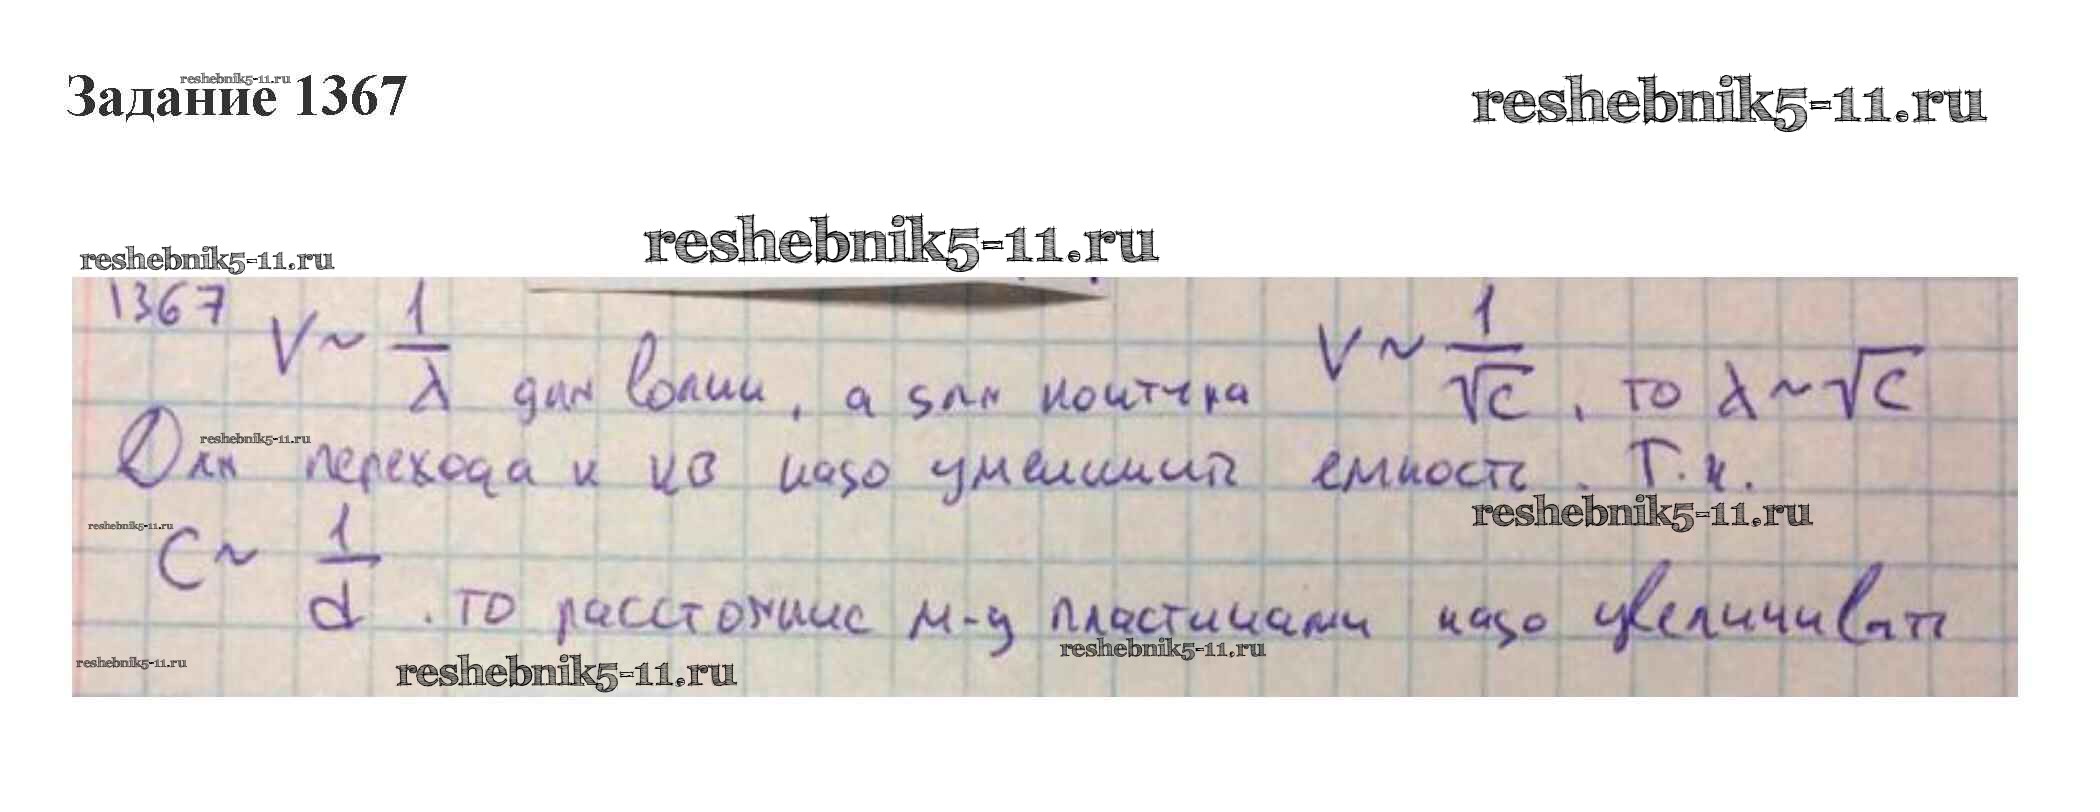 Задание 1367
reshebnik5-11.ru
reshebnik5-11.ru
reshebnik5-11.ru
reshebnik5-11.ru
1367 ν ~ 1/λ для волны, а для контура ν ~ 1/√C, то λ ~ √C
Для перехода к КВ надо уменьшить емкость. Т.к.
reshebnik5-11.ru
reshebnik5-11.ru
reshebnik5-11.ru
C ~ 1/d, то расстояние м-у пластинами надо увеличивать
reshebnik5-11.ru
reshebnik5-11.ru
reshebnik5-11.ru